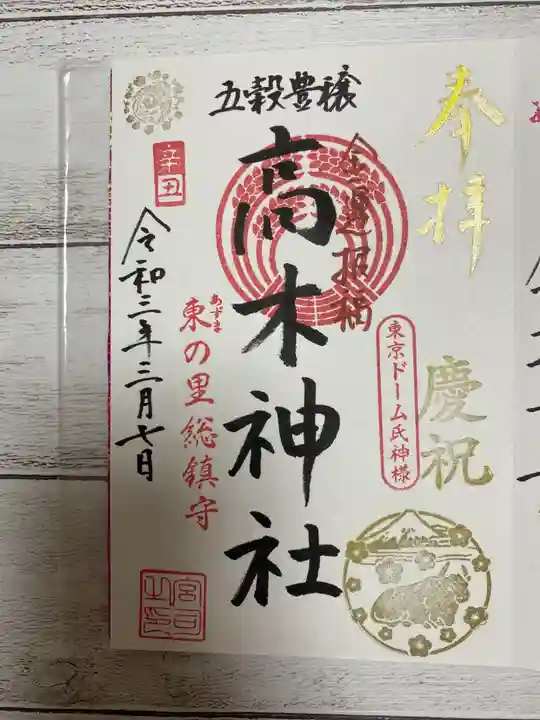 奉拝
慶祝
東京ドーム氏神様
五穀豊穣
金運招福
高木神社
あずま
東の里総鎮守
辛丑
令和三年三月七日
宮司之印